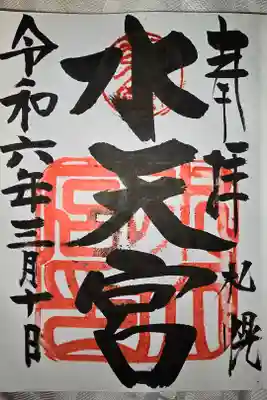 奉拝
札幌
水天宮
令和六年三月十日